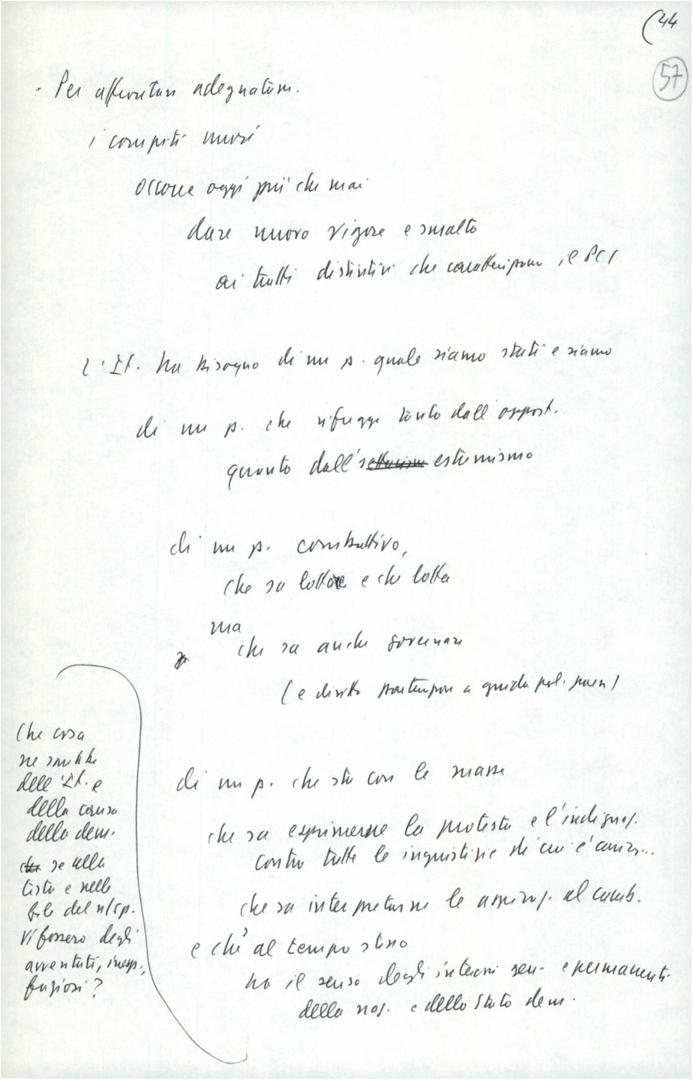 (44
57
- Per affrontare adeguatam.
i compiti nuovi
occorre oggi più che mai
dare nuovo vigore e smalto
ai tratti distintivi che caratterizzano il PCI
L'It. ha bisogno di un p. quale siamo stati e siamo
di un p. che rifugge tanto dall'opport.
quanto dall'estremismo
di un p. combattivo,
che sa lottare e che lotta
ma
che sa anche governare
(e diritto a guida pol. paese)
di un p. che sta con le masse
che sa esprimerne la protesta e l'indignaz.
contro tutte le ingiustizie di cui è
che sa interpretarne le aspiraz. al camb.
e che al tempo stesso
ha il senso degli interessi gen. e permanenti
della naz. e dello Stato dem.
Che cosa
ne sarebbe
dell'It. e
della causa
della dem.
se alla
testa e nelle
file del n/s p.
vi fossero degli
avventati, inesp.,
faziosi?